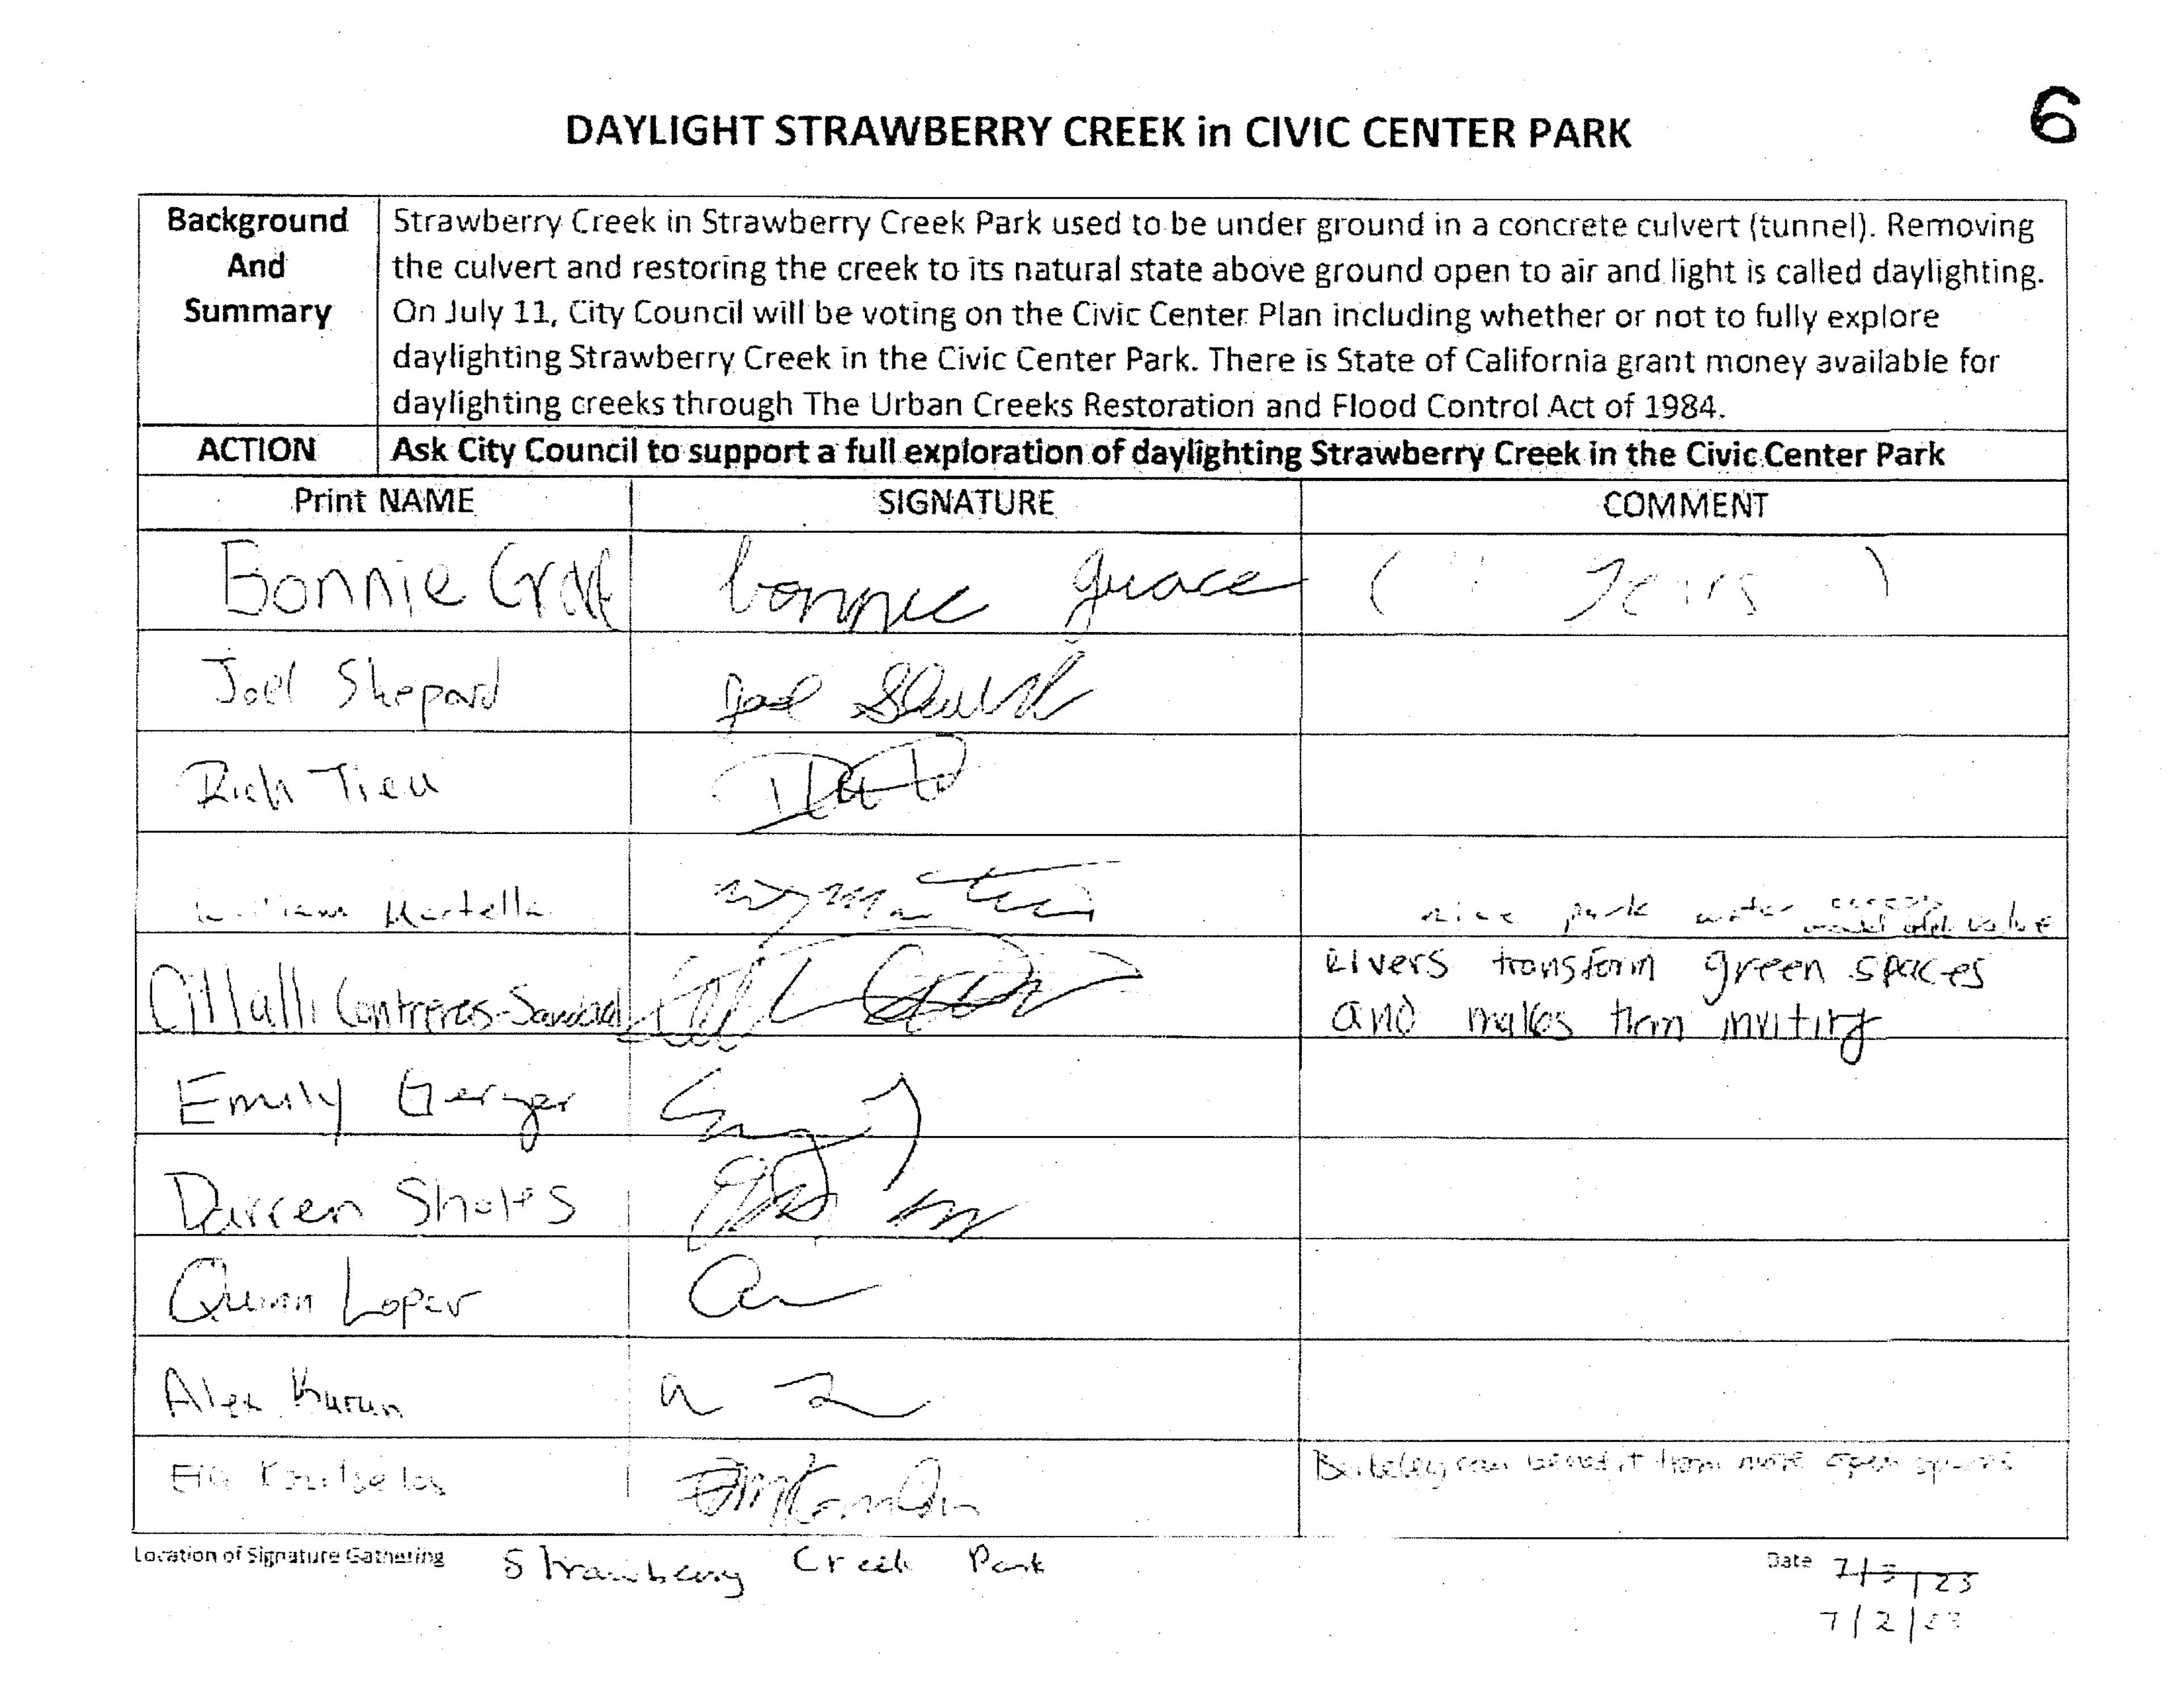 6
DAYLIGHT STRAWBERRY CREEK in CIVIC CENTER PARK
Background And Summary
Strawberry Creek in Strawberry Creek Park used to be under ground in a concrete culvert (tunnel). Removing
the culvert and restoring the creek to its natural state above ground open to air and light is called daylighting.
On July 11, City Council will be voting on the Civic Center Plan including whether or not to fully explore
daylighting Strawberry Creek in the Civic Center Park. There is State of California grant money available for
daylighting creeks through The Urban Creeks Restoration and Flood Control Act of 1984.
ACTION Ask City Council to support a full exploration of daylighting Strawberry Creek in the Civic Center Park
Print NAME SIGNATURE COMMENT
Bonnie bonnie grace ( years )
Joel Shepard Joel
Rich Tieu
William Martella nice park water access
would add value
Citlalli Contreras-Sandoval rivers transform green spaces
and makes them inviting
Emily Gerger
Darren
Quinn Loper
Alex
Berkeley can benefit from more open spaces
Location of Signature Gathering Strawberry Creek Park Date 7/3/23
7/2/23